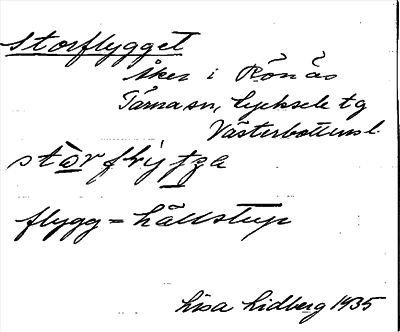 Storflygget
åker i Rönäs
Tärna sn, Lycksele tg
Västerbottens l.
flygg = hällstup
Lisa Lidberg 1935